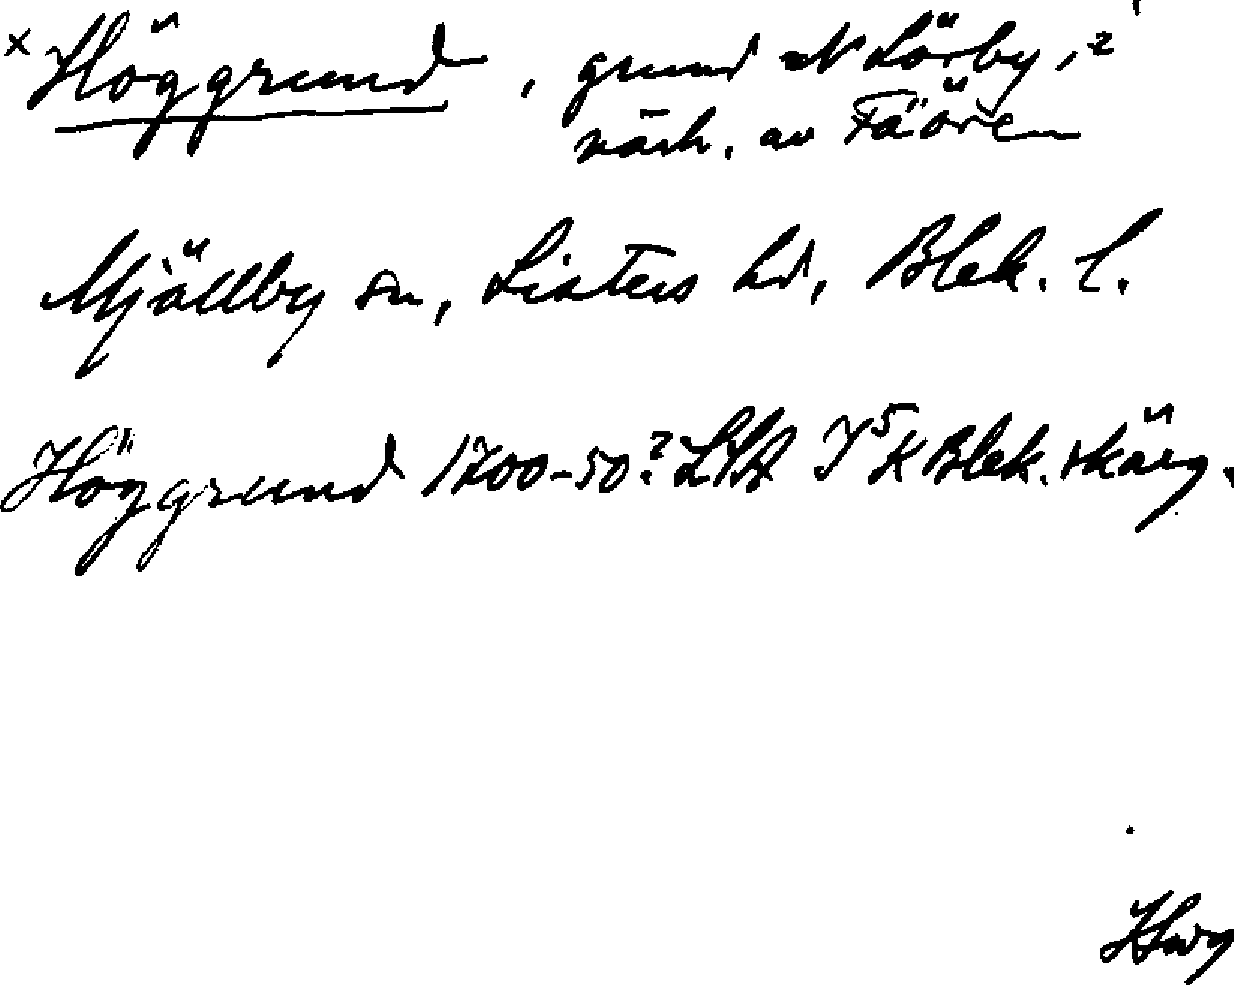 x Höggrund, grund N Lörby, i
närh. av Fäören
Mjällby sn, Listers hd, Blek. l.
Höggrund 1700-50? LSA I 5 K Blek. skärg.